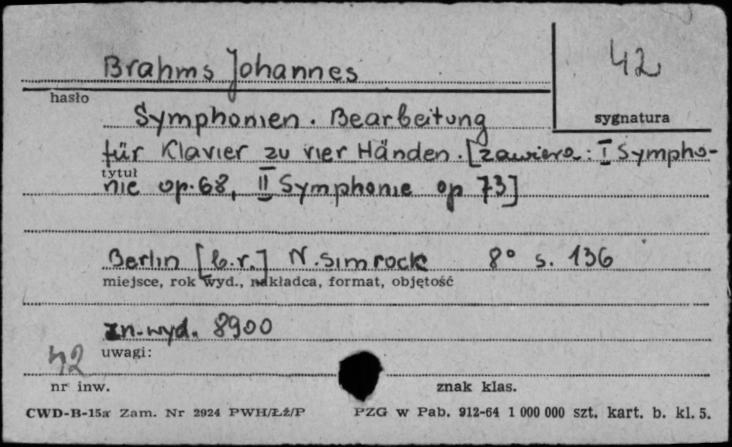 Brahms Johannes
42
hasło
sygnatura
Symphonien. Bearbeitung
für Klavier zu vier Händen. [zawiera: I Sympho-
tytuł
nie op. 68, II Symphonie op 73]
Berlin [b.r.] N. Simrock 8° s. 136
miejsce, rok wyd., nakładca, format, objętość
zn. wyd. 8900
uwagi:
42
nr inw.
znak klas.
CWD-B-15a Zam. Nr 2924 PWH/Łź/P PZG w Pab. 912-64 1 000 000 szt. kart. b. kl. 5.